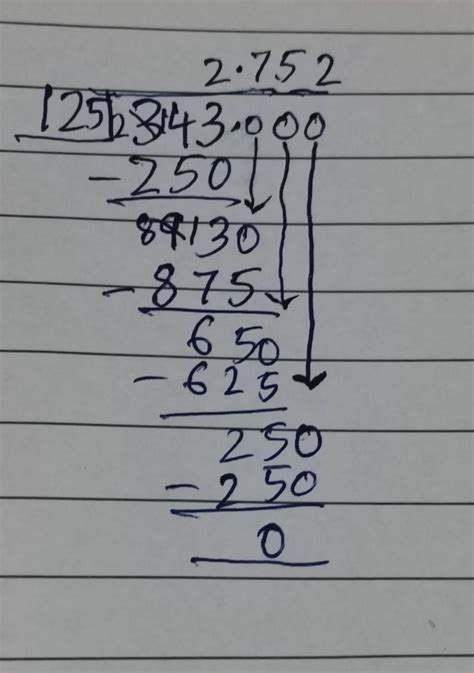 2.752
125 23143.000
-250
89130
-875
650
-625
250
-250
0